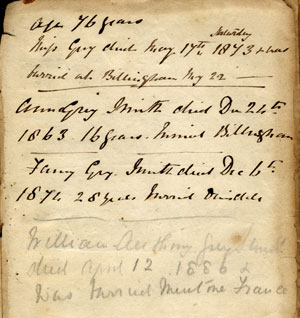 age 76 years
Saturday
Miss Grey died May 17th 1873 & was
buried at Billingham May 22 —
Grey Smith died Dec 24th
1863 16 years buried Billingham
Fanny Grey Smith died Dec 6th
1874 28 years buried Dinsdale
William Anthony Grey Smith
died April 12 1886 &
Was buried Mentone France